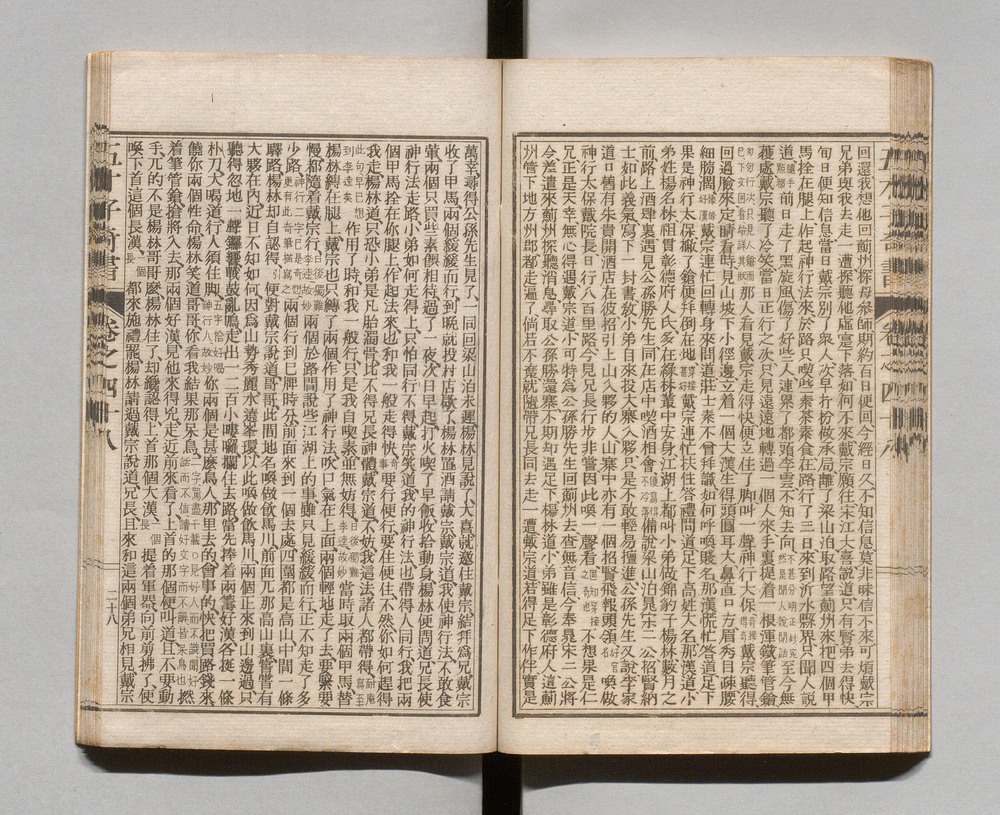 回還我想他回薊州探母參師期約百日便回今經日久不知信息莫非昧信不來可煩戴宗
兄弟與我去走一遭探聽他虛實下落如何不來戴宗願往宋江大喜說道只有賢弟去得快
旬日便知信息當日戴宗別了眾人次早打扮做承局離了梁山泊取路望薊州來把四個甲
馬拴在腿上作起神行法來於路只喫些素茶素食在路行了三日來到沂水縣界只聞人說
道前日走了黑旋風傷了好些人連累了都頭李雲不知去向至今無
獲處戴宗聽了冷笑當日正行之次只見遠遠地轉過一個人來手裏提着一根渾鐵筆管鎗
那人看見戴宗走得快便立住了脚叫一聲神行太保戴宗聽得
回過臉來定睛看時見山坡下小徑邊立着一個大漢生得頭圓耳大鼻直口方眉秀目疎腰
細膀濶戴宗連忙回轉身來問道壯士素不曾拜識如何呼喚賤名那漢慌忙答道足下
果是神行太保撇了鎗便拜倒在地戴宗連忙扶住答禮問道足下高姓大名那漢道小
弟姓楊名林祖貫彰德府人氏多在綠林叢中安身江湖上都叫小弟做錦豹子楊林數月之
前路上酒肆裏遇見公孫勝先生同在店中喫酒相會備說梁山泊晁宋二公招賢納
士如此義氣寫下一封書教小弟自來投大寨入夥只是不敢輕易擅進公孫先生又說李家
道口舊有朱貴開酒店在彼招引上山入夥的人山寨中亦有一個招賢飛報頭領喚做
神行太保戴院長日行八百里路今見兄長行步非常因此喚一聲看不想果是仁
兄正是天幸無心得遇戴宗道小可特為公孫勝先生回薊州去杳無音信今奉晁宋二公將
令差遣來薊州探聽消息尋取公孫勝還寨不期却遇足下楊林道小弟雖是彰德府人這薊
州管下地方州郡都走遍了倘若不棄就隨侍兄長同去走一遭戴宗道若得足下作伴實是
萬幸尋得公孫先生見了一同回梁山泊未遲楊林見說了大喜就邀住戴宗結拜為兄戴宗
收了甲馬兩個緩緩而行到晚就投村店歇了楊林置酒請戴宗戴宗道我使神行法不敢食
葷兩個只買些素饌相待過了一夜次日早起打火喫了早飯收拾動身楊林便問道兄長使
神行法走路小弟如何走得上只怕同行不得戴宗笑道我的神行法也帶得人同行我把兩
個甲馬拴在你腿上作起法來也和我一般走得快要行便行要住便住不然你如何趕得
我走楊林道只恐小弟是凡胎濁骨比不得兄長神體戴宗道不妨我這法諸人都帶得
作用了時和我一般行只是我自喫素並無妨得當時取兩個甲馬替
楊林縛在腿上戴宗也只縛了兩個作用了神行法吹口氣在上面兩個輕輕地走了去要緊要
慢都隨着戴宗行兩個於路閒說些江湖上的事雖只見緩緩而行正不知走了多
少路兩個行到巳牌時分前面來到一個去處四圍都是高山中間一條
驛路楊林却自認得便對戴宗說道哥哥此間地名喚做飲馬川前面兀那高山裏常常有
大夥在內近日不知如何因為山勢秀麗水遶峯環以此喚做飲馬川兩個正來到山邊過只
聽得忽地一聲鑼響戰鼓亂鳴走出一二百小嘍囉攔住去路當先捧着兩籌好漢各挺一條
朴刀大喝道行人須住脚你兩個是甚麼鳥人那里去的會事的快把買路錢來
饒你兩個性命楊林笑道哥哥你看我結果那呆鳥撚
着筆管鎗搶將入去那兩個好漢見他來得兇走近前來看了上首的那個便叫道且不要動
手兀的不是楊林哥哥麼楊林住了却纔認得上首那個大漢提着軍器向前剪拂了便
喚下首這個長漢都來施禮罷楊林請過戴宗說道兄長且來和這兩個弟兄相見戴宗
五才子奇書
卷之四十八
二十八